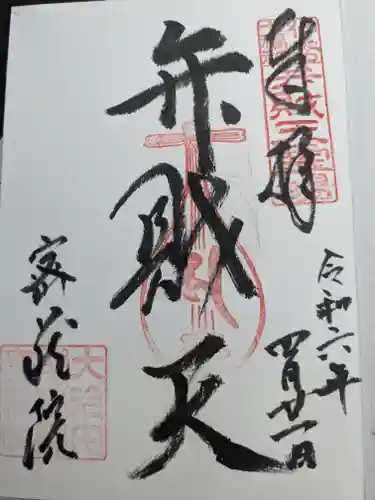 奉拝
弁財天
令和六年
四月廿一日
密蔵院